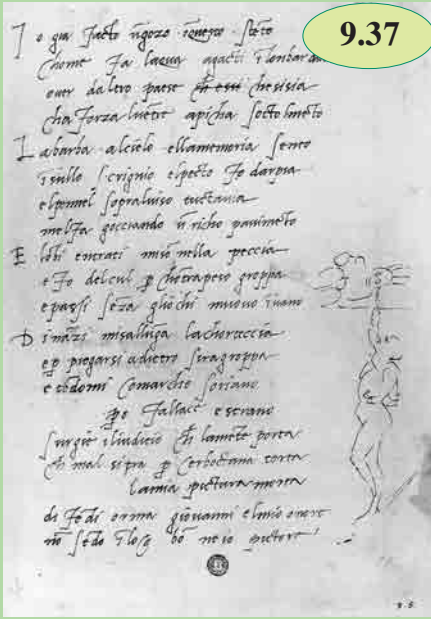 9.37
I o gia facto ngozo i questo stēto
chome fa lacqua agacti i lombardia
over daltro paese ch essi chesisia
cha forza luētre apicha socto lmēto
L abarba alcielo ellamemoria sento
i sullo scrignio elpecto fo darpia
elpennel sopraluiso tuctavia
melfa gocciando ū richo pavimēto
E lobi entrati mison nella peccia
e fo delcul p chōtrapeso groppa
epassi seza gliochi muovo ivano
D inazi misallunga lachorteccia
e p piegarsi adietro sragroppa
e tēdomi comarcho soriano
po fallace e strano
surgie iliuditio ch lamēte porta
ch mal sipra p cerboctana torta
lamia pictura morta
di fēdi orma giovanni elmio onore
nō sēdo ilog bō ne io pictore